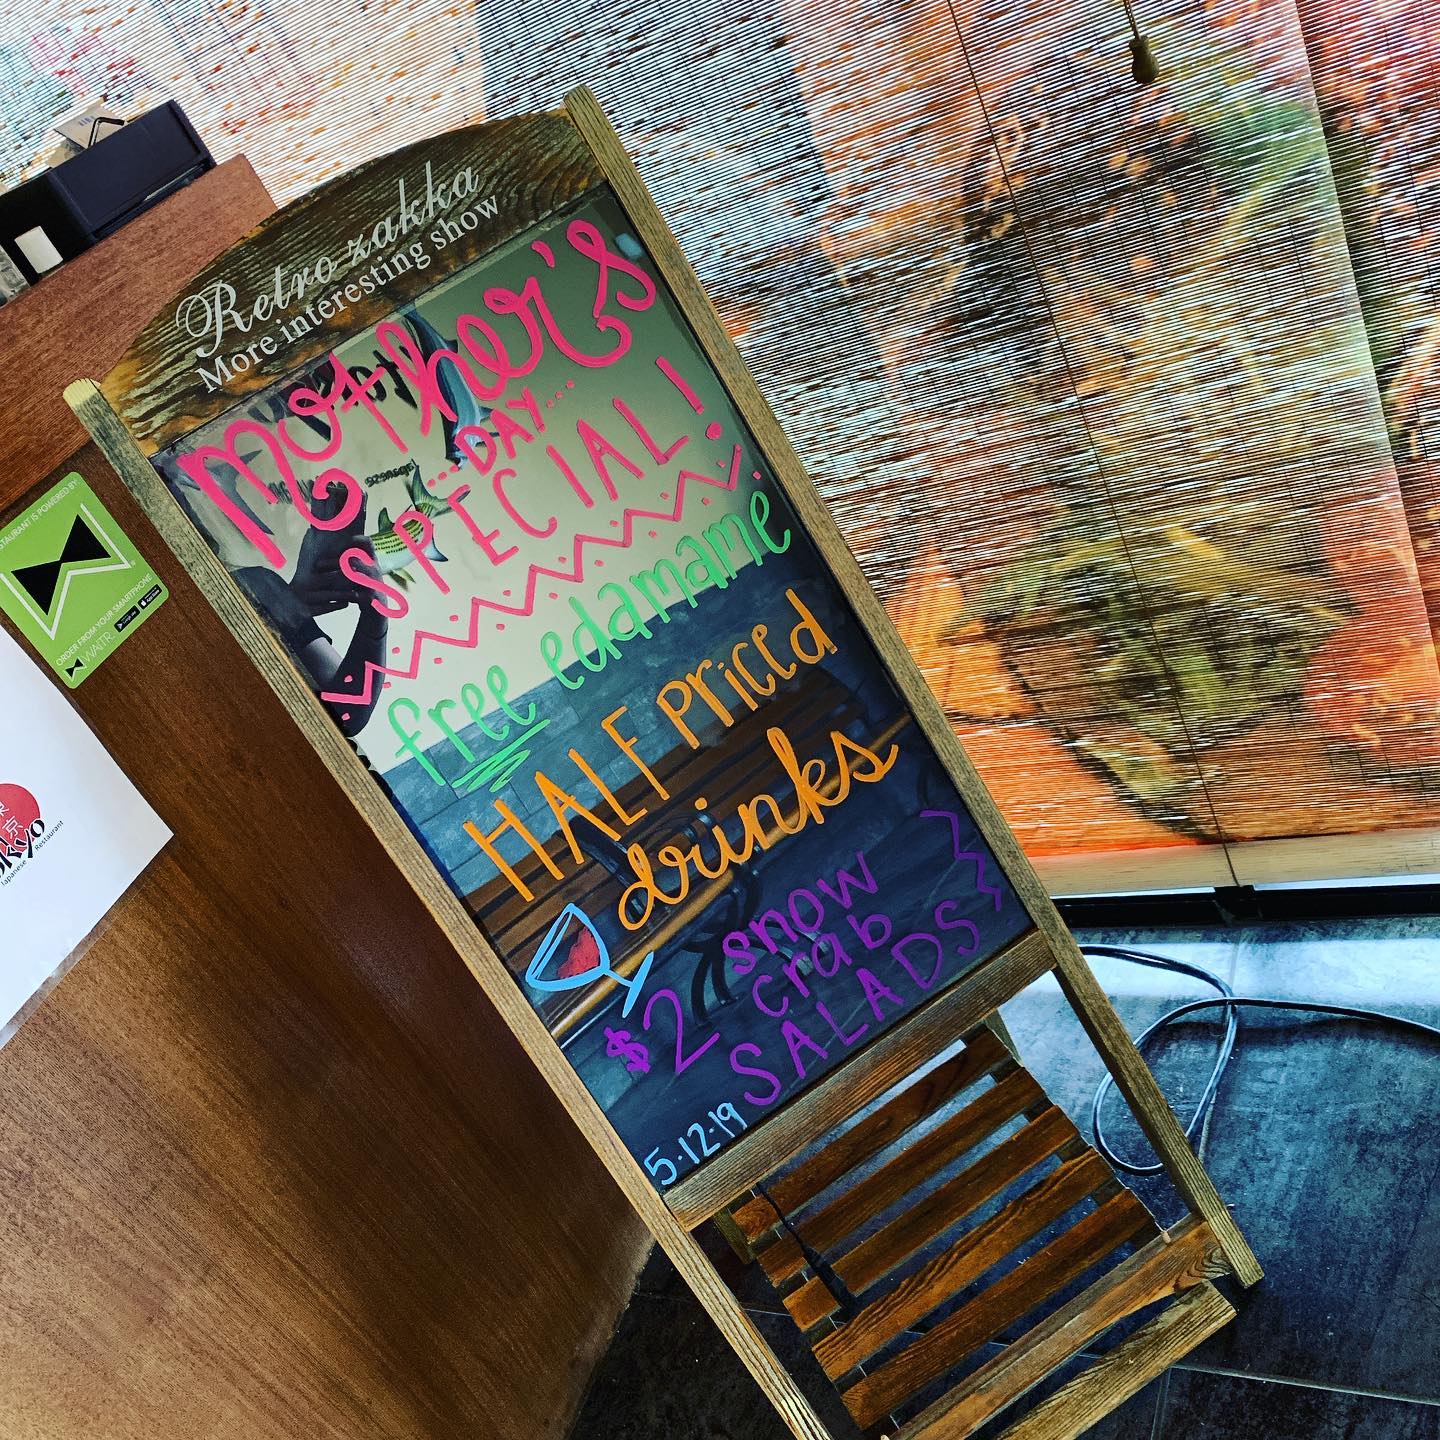 Retro zakka
More interesting show
Mother's
...DAY...
SPECIAL!
free edamame
HALF Priced
drinks
$2 snow
crab
SALADS
5.12.19
RESTAURANT IS POWERED BY:
ORDER FROM YOUR SMARTPHONE
WAITR
京
Japanese Restaurant